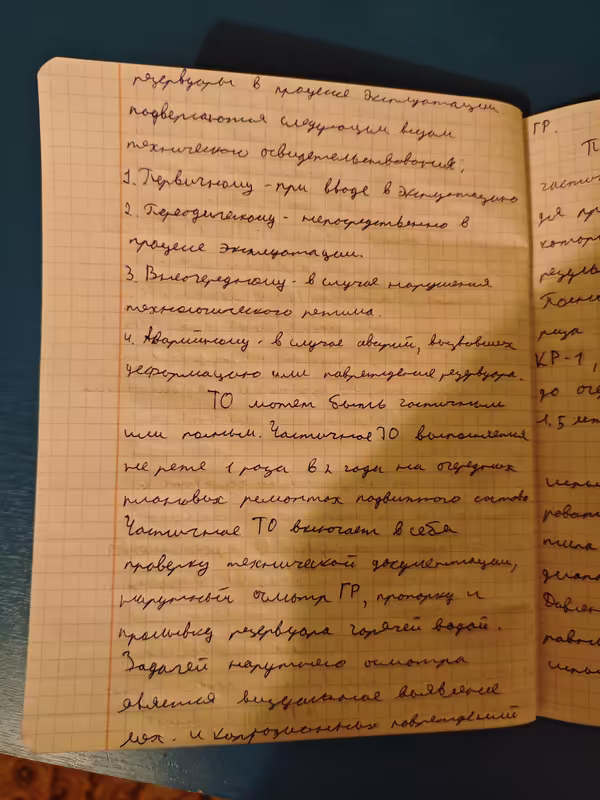 резервуары в процессе эксплуатации
подвергаются следующим видам
технического освидетельствования:
1. Первичному - при вводе в эксплуатацию
2. Переодическому - непосредственно в
процессе эксплуатации.
3. Внеочередному - в случае нарушения
технологического режима.
4. Аварийному - в случае аварий, вызвавших
деформацию или повреждение резервуара.
ТО может быть частичным
или полным. Частичное ТО выполняется
не реже 1 раза в 2 года на очередных
плановых ремонтах подвижного состава
Частичное ТО включает в себя
проверку технической документации,
наружный осмотр ГР, пропарку и
промывку резервуара горячей водой.
Задачей наружнего осмотра
является визуальное выявление
мех. и коррозионных повреждений
ГР.
П
части
для пр
котор
резуль
Полно
раза
КР-1,
до оче
1,5 
испы
роват
типа
диапа
Давлен
равн
испы